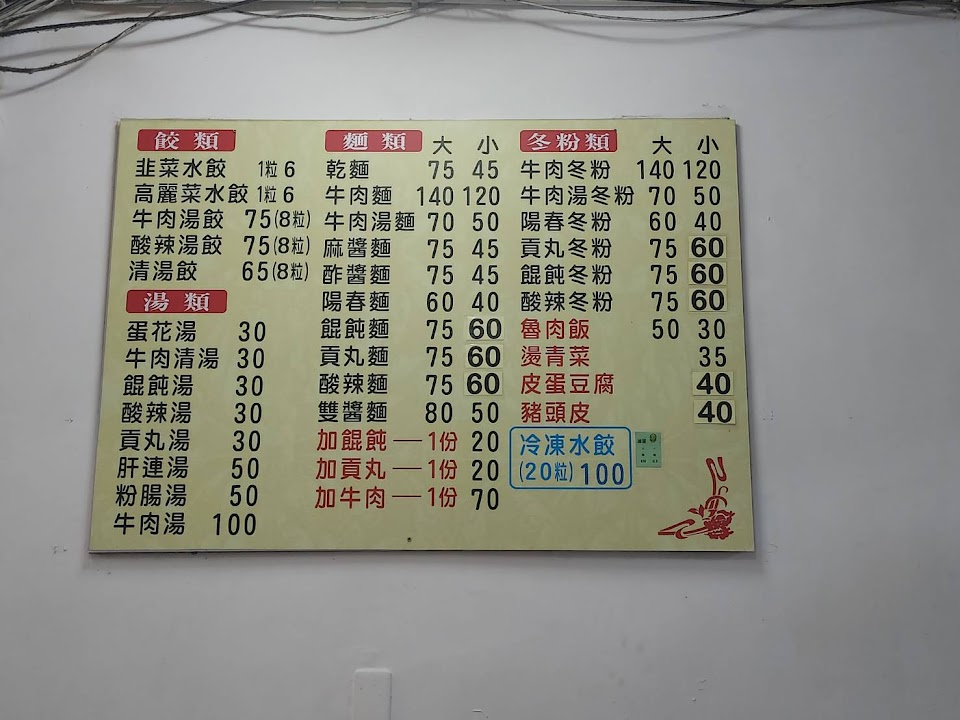 餃類
韭菜水餃 1粒 6
高麗菜水餃 1粒 6
牛肉湯餃 75(8粒)
酸辣湯餃 75(8粒)
清湯餃 65(8粒)
湯類
蛋花湯 30
牛肉清湯 30
餛飩湯 30
酸辣湯 30
貢丸湯 30
肝連湯 50
粉腸湯 50
牛肉湯 100
麵類 大 小
乾麵 75 45
牛肉麵 140 120
牛肉湯麵 70 50
麻醬麵 75 45
酢醬麵 75 45
陽春麵 60 40
餛飩麵 75 60
貢丸麵 75 60
酸辣麵 75 60
雙醬麵 80 50
加餛飩—1份 20
加貢丸—1份 20
加牛肉—1份 70
冬粉類 大 小
牛肉冬粉 140 120
牛肉湯冬粉 70 50
陽春冬粉 60 40
貢丸冬粉 75 60
餛飩冬粉 75 60
酸辣冬粉 75 60
魯肉飯 50 30
燙青菜 35
皮蛋豆腐 40
豬頭皮 40
冷凍水餃
(20粒)100